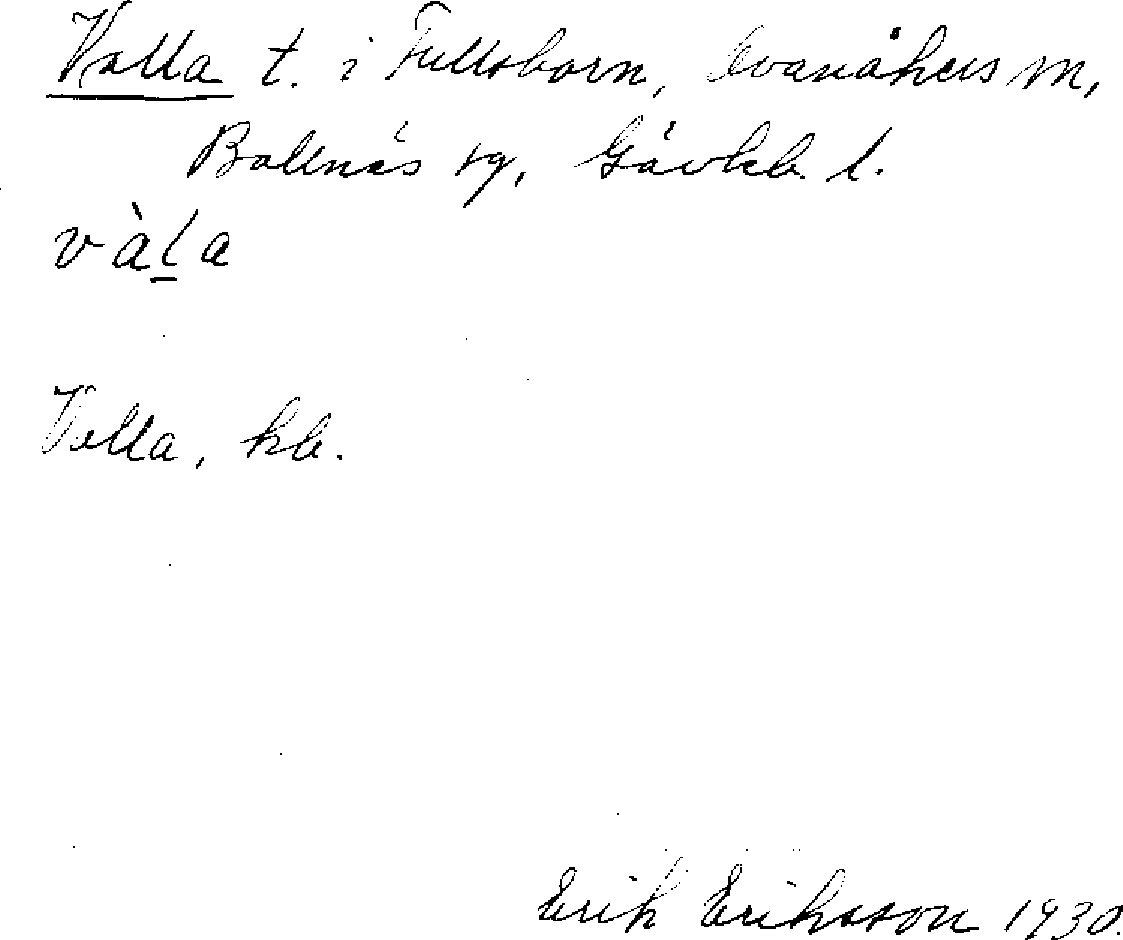 Valla t. i Fullsborn, Svanåhus m,
Bollnäs sg, Gävleb. l.
vàl̲a
Valla, kb.
Erik Eriksson 1930.